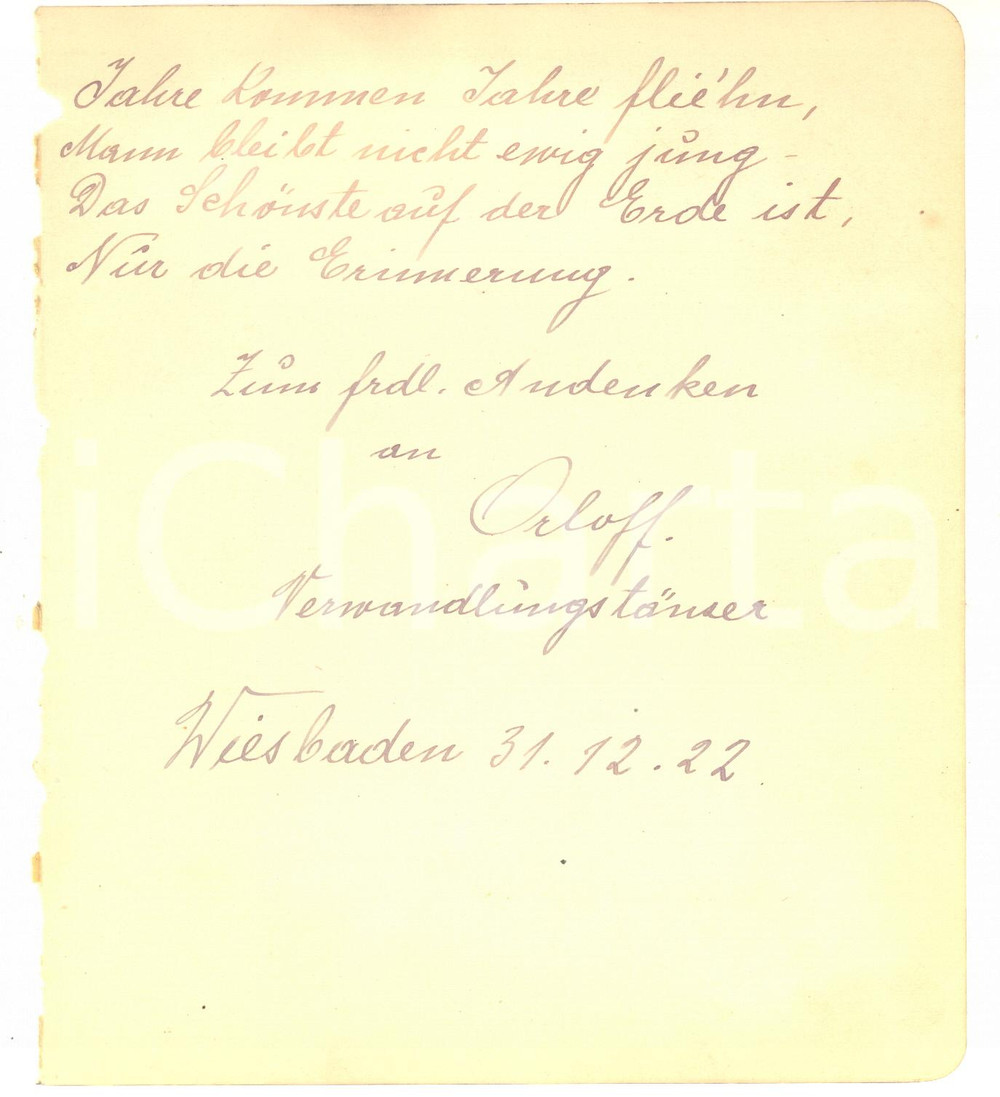 Jahre kommen Jahre flie'hn,
Mann bleibt nicht ewig jung -
Das Schönste auf der Erde ist,
Nur die Erinnerung.
Zum frdl. Andenken
an
Orloff.
Verwandlungstänzer
Wiesbaden 31. 12. 22.
iCharta